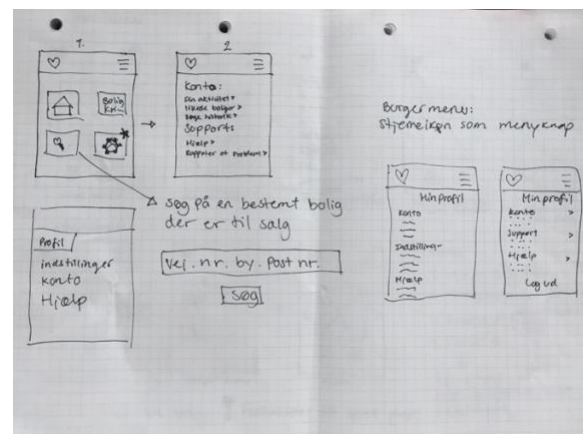 1.
Bolig
2
Konto:
Din aktivitet >
Søge historik >
Support:
Hjælp >
Rapporter et problem >
søg på en bestemt bolig
der er til salg
Vej. nr. by. Post nr.
søg
Profil
indstillinger
Konto
Hjælp
Burger menu:
Stjerneikon som menuknap
Min profil
Konto
Indstillinger
Hjælp
Min profil
Konto >
Support >
Hjælp >
Log ud